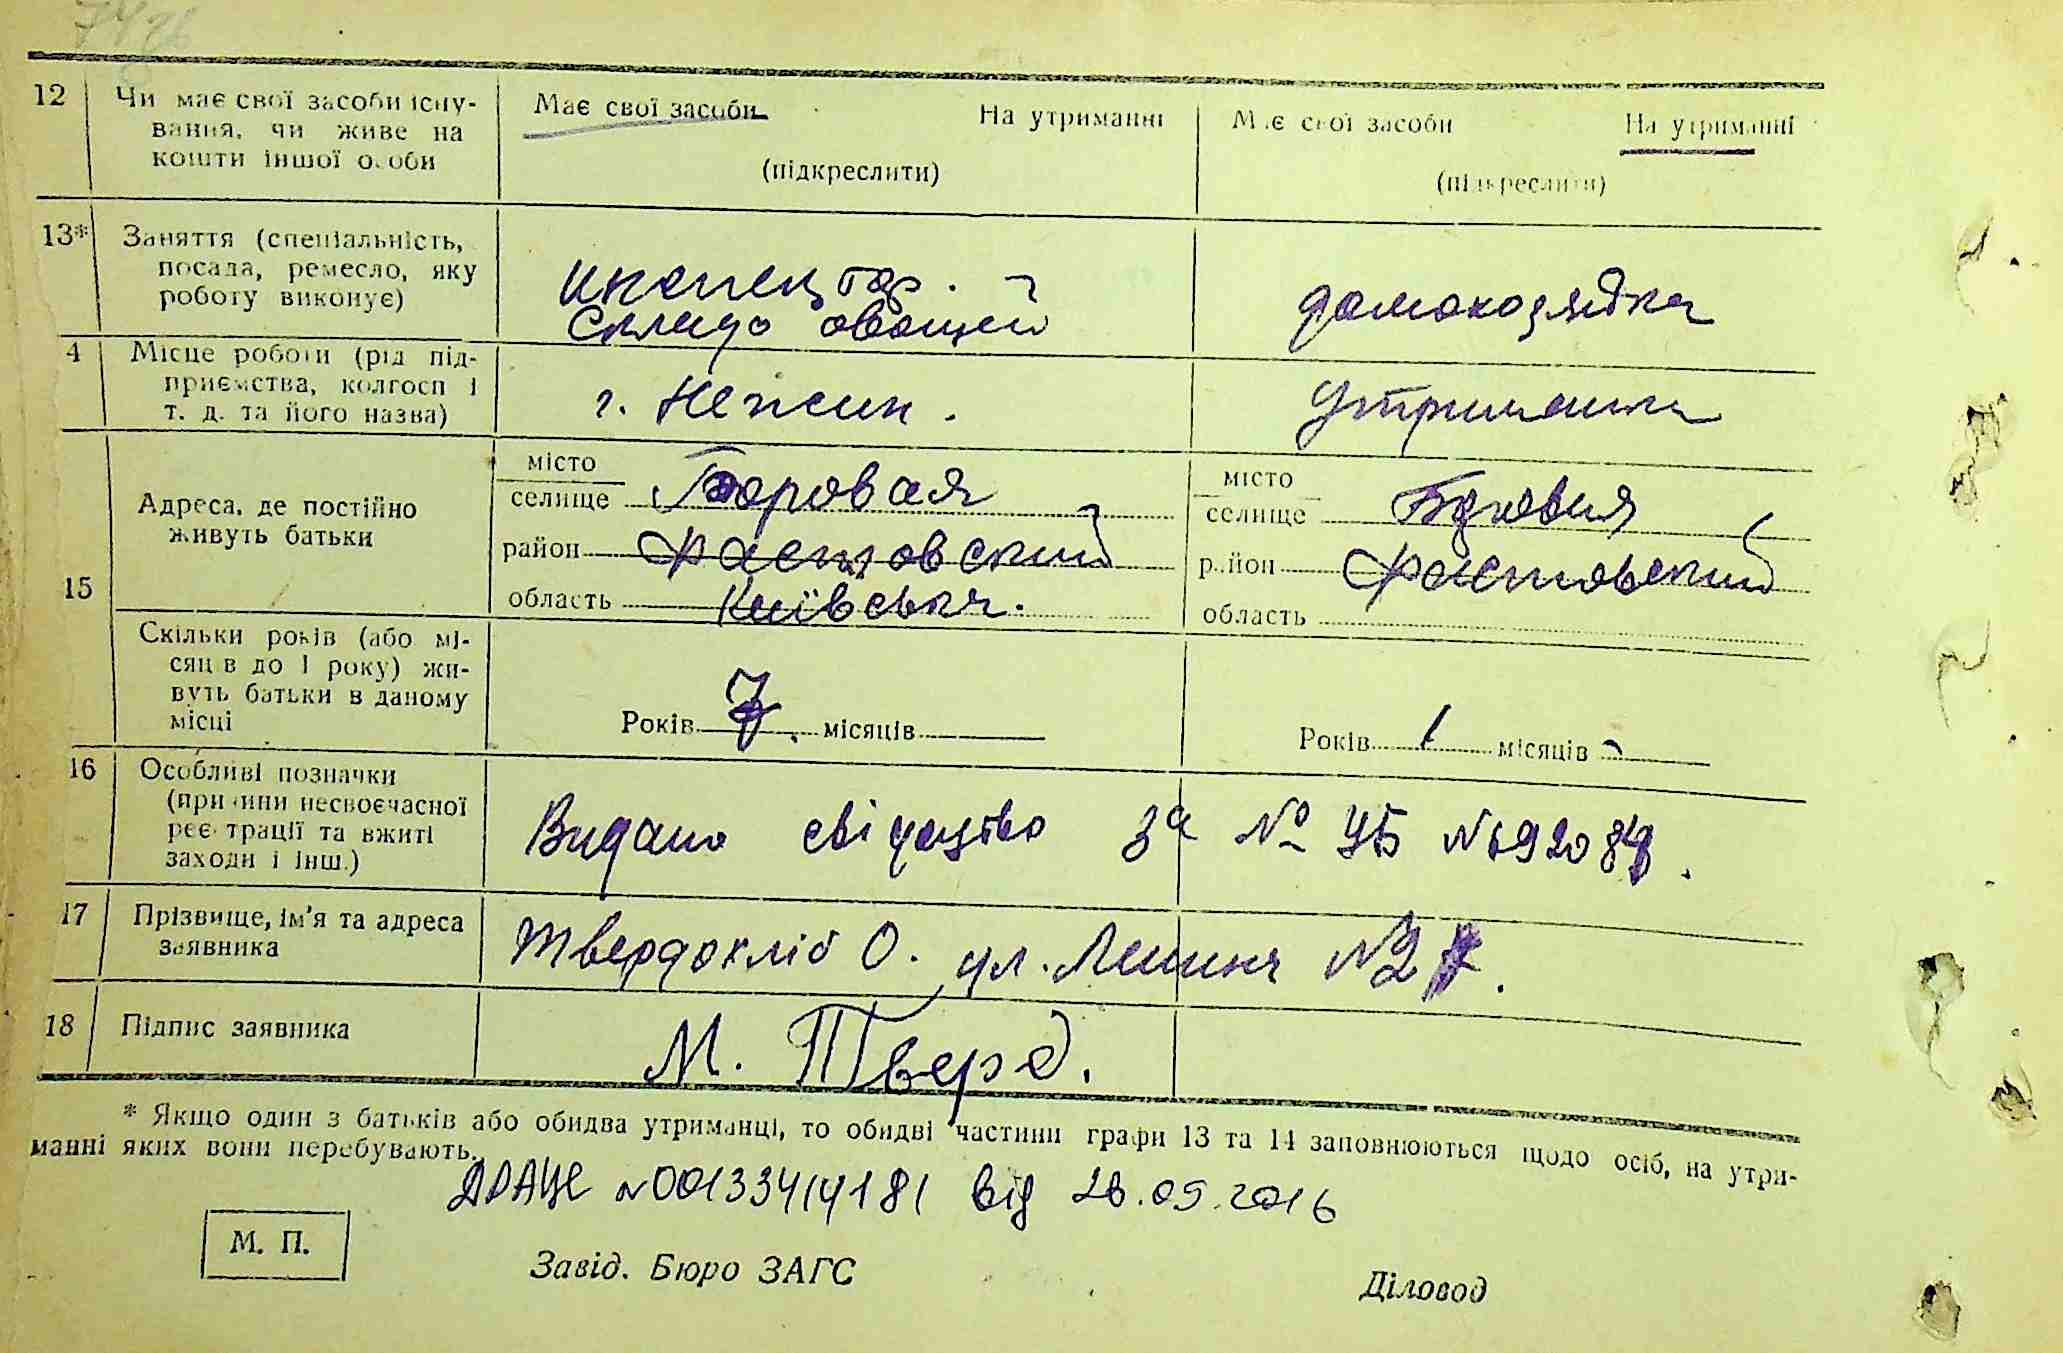 12 Чи має свої засоби існу-
вання, чи живе на
кошти іншої особи
Має свої засоби На утриманні
(підкреслити)
Має свої засоби На утриманні
(підкреслити)
13* Заняття (спеціальність,
посада, ремесло, яку
роботу виконує)
инспектор.
Складо овощей
домохозяйка
4 Місце роботи (рід під-
приємства, колгосп і
т. д. та його назва)
г. Нежин.
утриманка
15 Адреса, де постійно
живуть батьки
місто
селище Боровая
район Фастовский
область Київська.
місто
селище Боровая
район Фастовский
область
Скільки років (або мі-
сяців до 1 року) жи-
вуть батьки в даному
місці
Років 7. місяців
Років 1 місяців -
16 Особливі позначки
(причини несвоєчасної
реєстрації та вжиті
заходи і інш.)
Видано свідоцтво за № УБ
17 Прізвище, ім'я та адреса
заявника
Твердохліб О. ул. Ленина
18 Підпис заявника
М. Тверд.
* Якщо один з батьків або обидва утриманці, то обидві частини графи 13 та 14 заповнюються щодо осіб, на утри-
манні яких вони перебувають.
ДРАЦС №00133414181 від 26.05.2016
М. П.
Завід. Бюро ЗАГС
Діловод